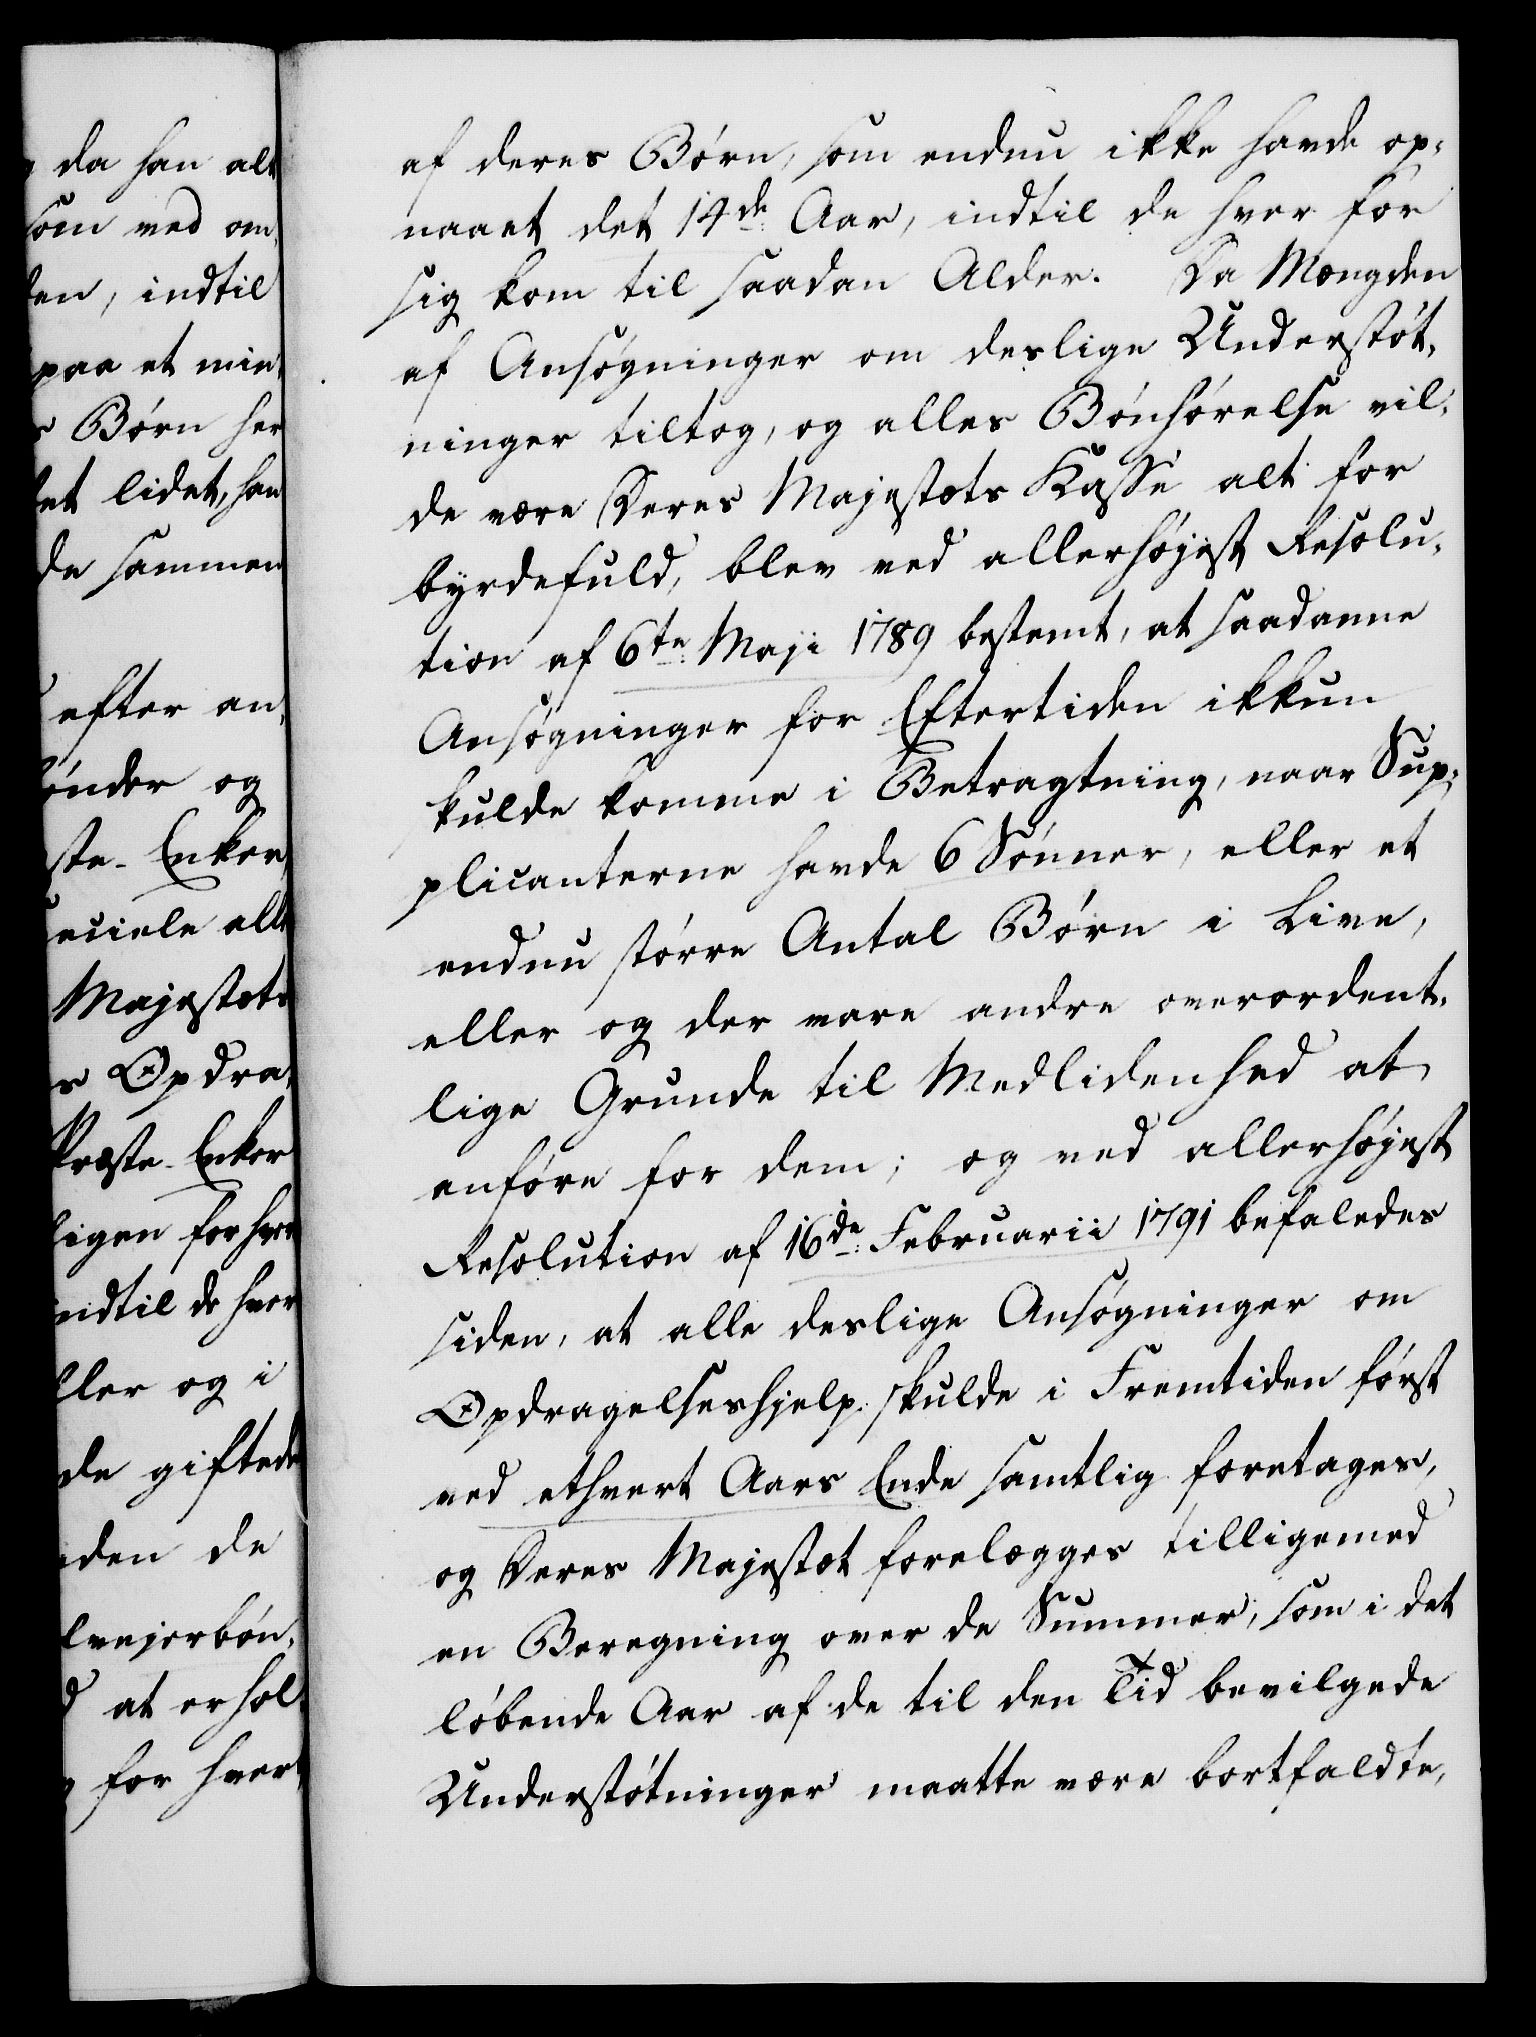 da han alt
som ved om-
den, indtil
paa et min-
s Børn her
et lidet, han
de sammen
efter an-
ønder og
ste-Enker
eciele all
Majestæts
s Opdra-
Præste-Enker
ligen for hver
indtil de hver
ller og i
de giftede
den de
lvejerbøn-
d at erhol-
for hver
af deres Børn, som endnu ikke havde op-
naaet det 14de Aar, indtil de hver for
sig kom til saadan Alder. Da Mængden
af Ansøgninger om deslige Understøt-
ninger tiltog, og alles Bønhørelse vil-
de være Deres Majestæts Kasse alt for
byrdefuld, blev ved allerhøjest Resolu-
tion af 6te Maji 1789 bestemt, at saadanne
Ansøgninger for Eftertiden ikkun
skulde komme i Betragtning, naar Sup-
plicanterne havde 6 Sønner, eller et
endnu større Antal Børn i Live,
eller og der vare andre overordent-
lige Grunde til Medlidenhed at
anføre for dem; og ved allerhøjest
Resolution af 16de Februarii 1791 befaledes
siden, at alle deslige Ansøgninger om
Opdragelseshjelp skulde i Fremtiden først
ved ethvert Aars Ende samtlig foretages,
og Deres Majestæt forelægges tilligemed
en Beregning over de Summer, som i det
løbende Aar af de til den Tid bevilgede
Understøtninger maatte være bortfaldte,